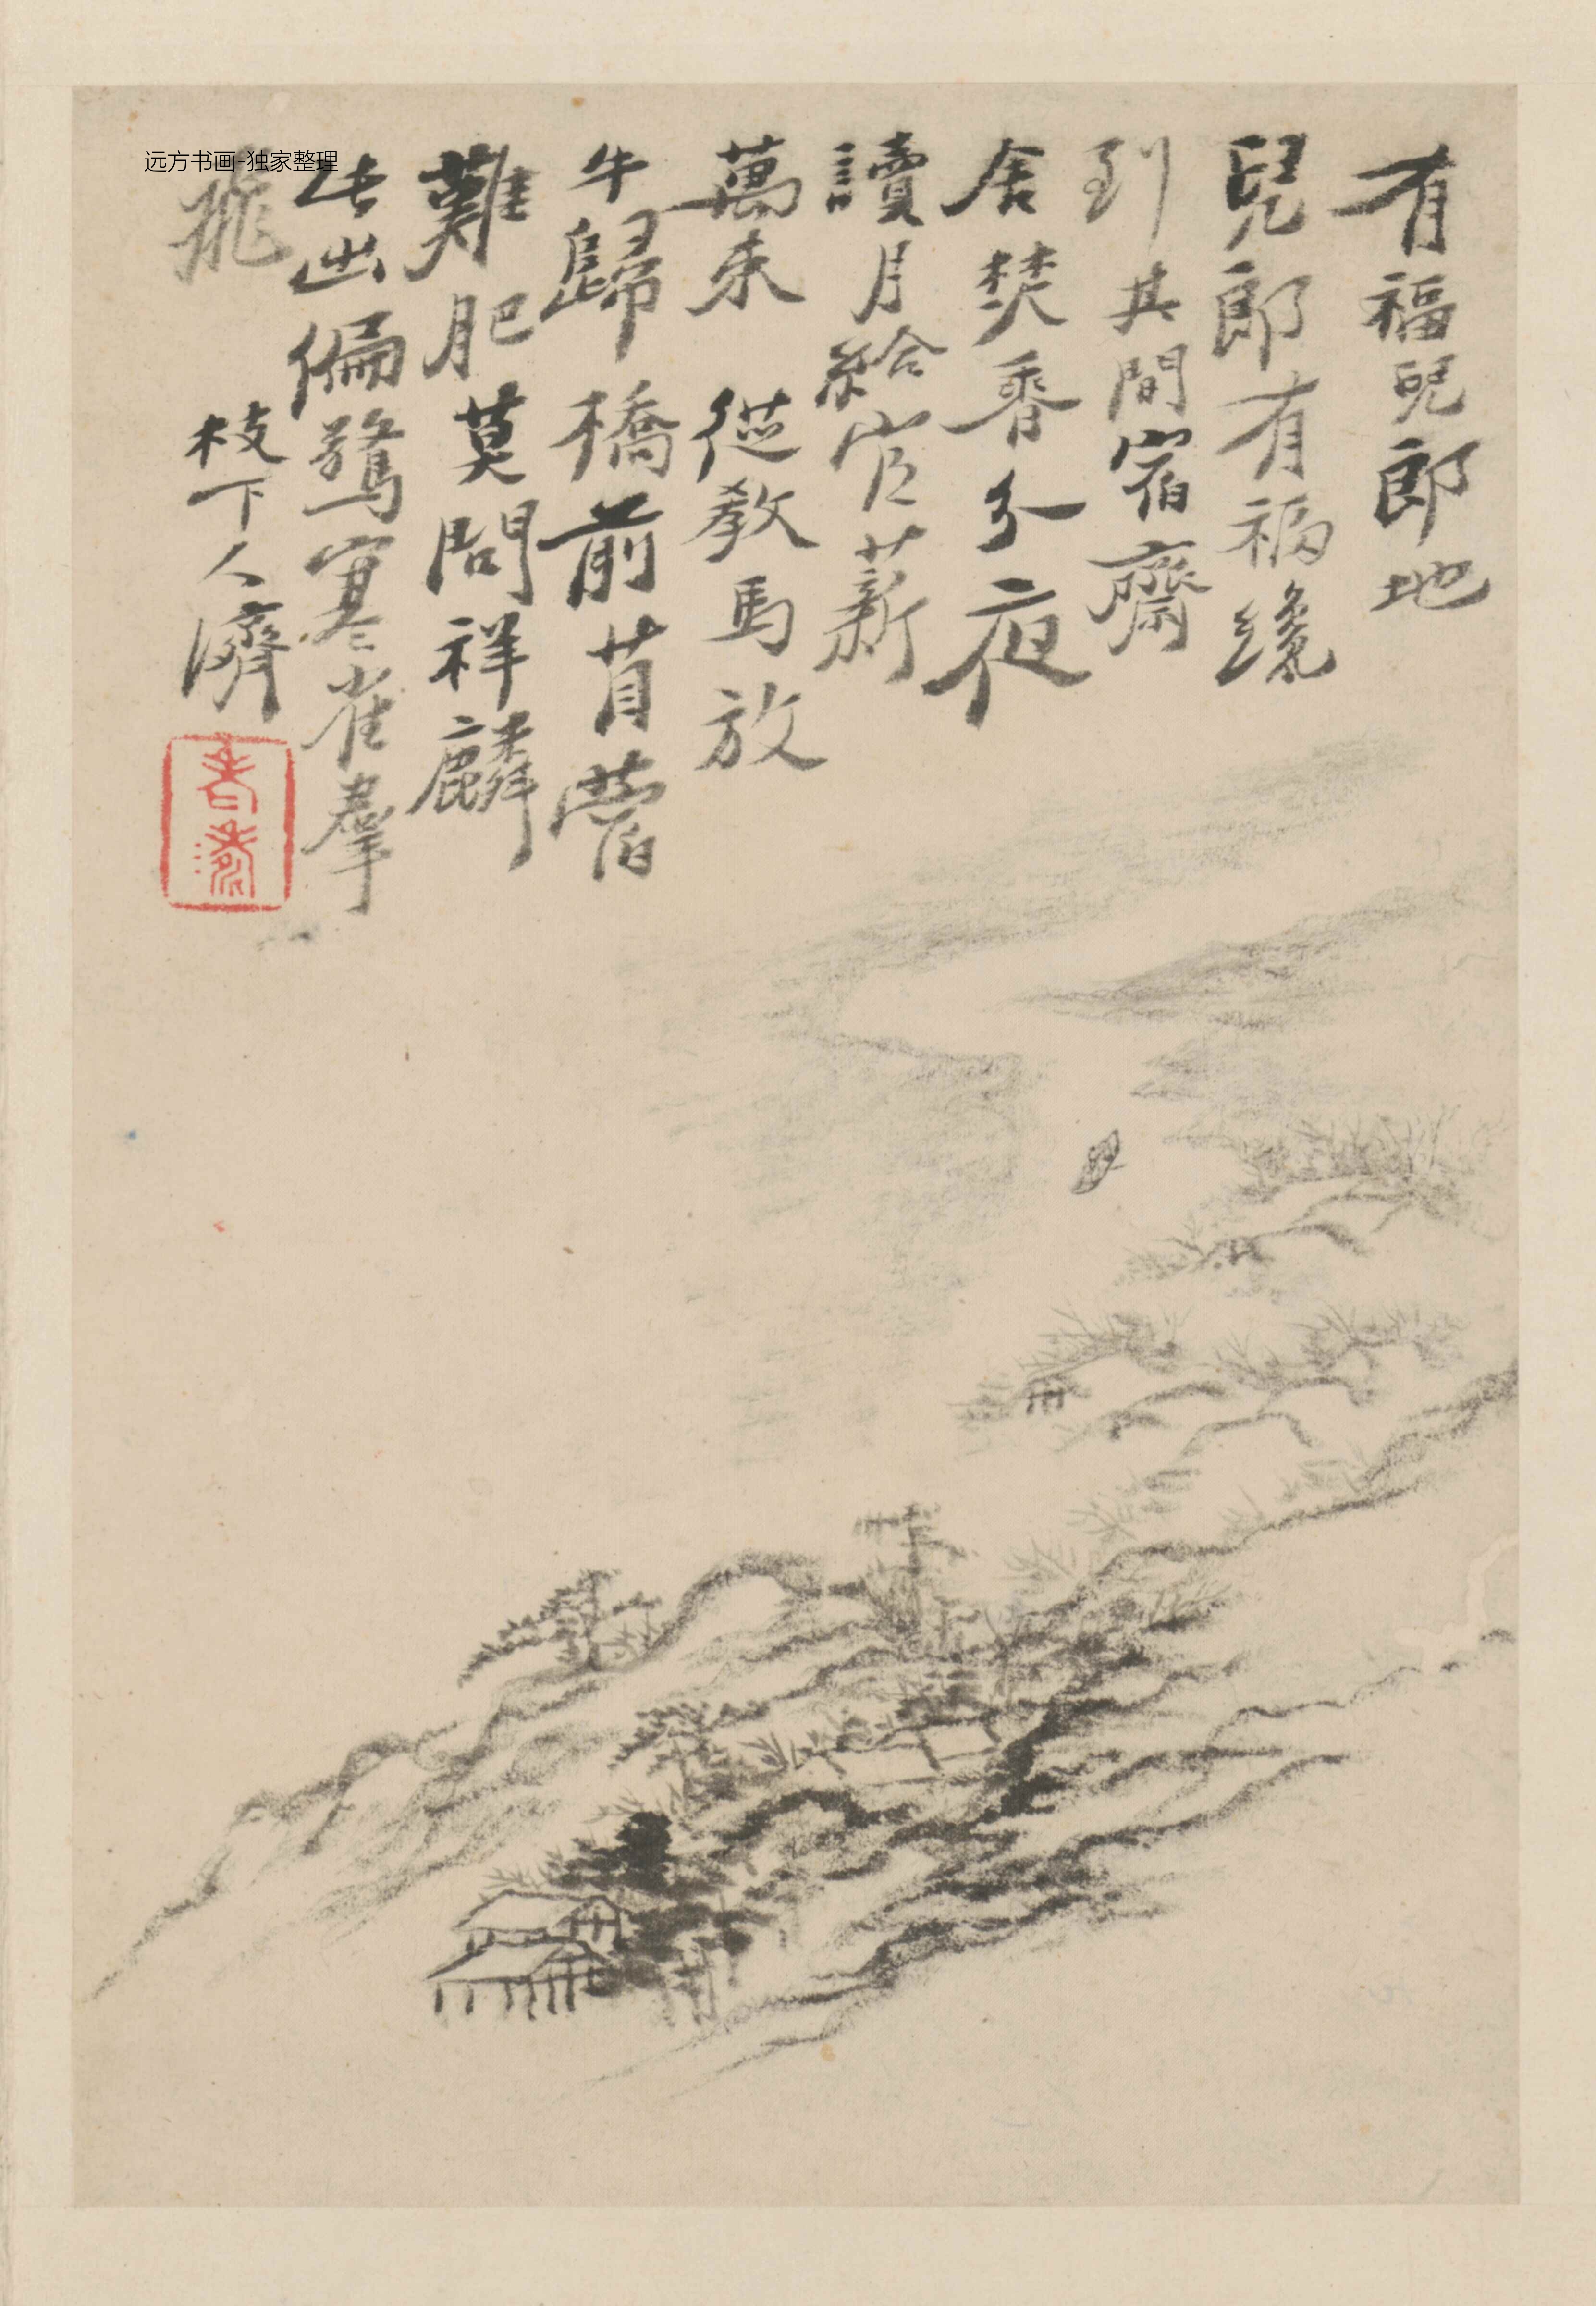 远方书画-独家整理
有福兒郎地
兒郎有福纔
到其間宿齋
舍焚香分夜
讀月給官薪
萬束從教馬放
牛歸橋前苜蓿
難肥莫問祥麟
出偏驚寒雀羣
飛
枝下人濟